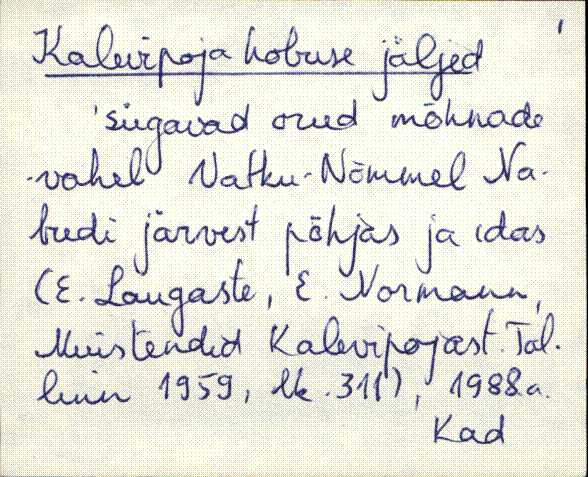 Kalevipoja hobuse jäljed
'sügavad orud mõhnade
vahel Vatku-Nõmmel Na-
budi järvest põhjas ja idas
(E. Laugaste, E. Normann,
Muistendid Kalevipojast. Tal-
linn 1959, lk. 311), 1988.a.
Kad